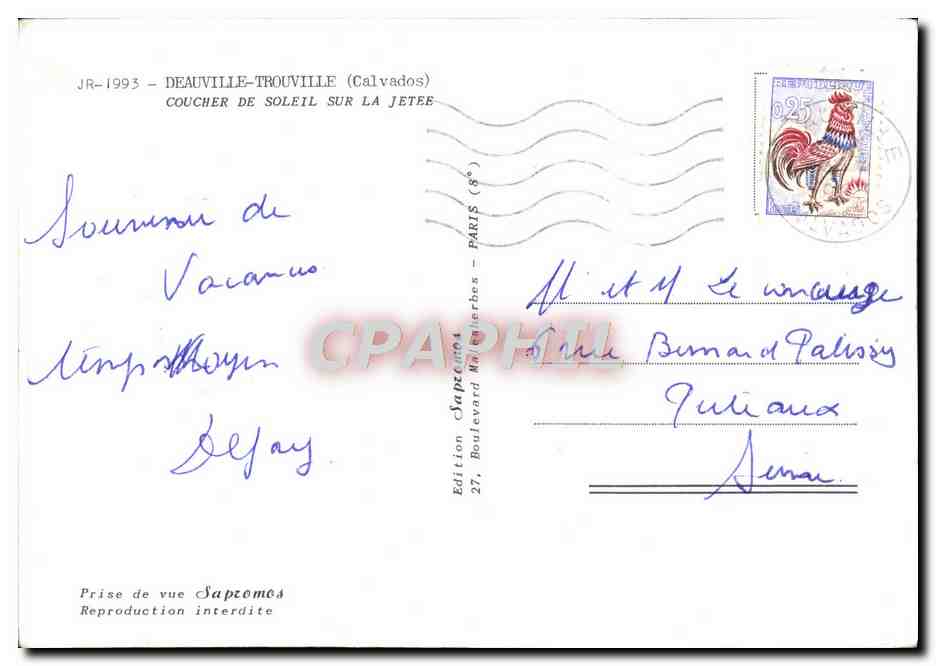 JR-1993 - DEAUVILLE-TROUVILLE (Calvados)
COUCHER DE SOLEIL SUR LA JETEE
REPUBLIQUE
0,25
Souvenir de
Vacances
temps Moyen
Edition Sapromos
27, Boulevard Malesherbes - PARIS (8°)
CPAPHIL
M et M Le
rue Bernard Palissy
Puteaux
Seine
Prise de vue Sapromos
Reproduction interdite